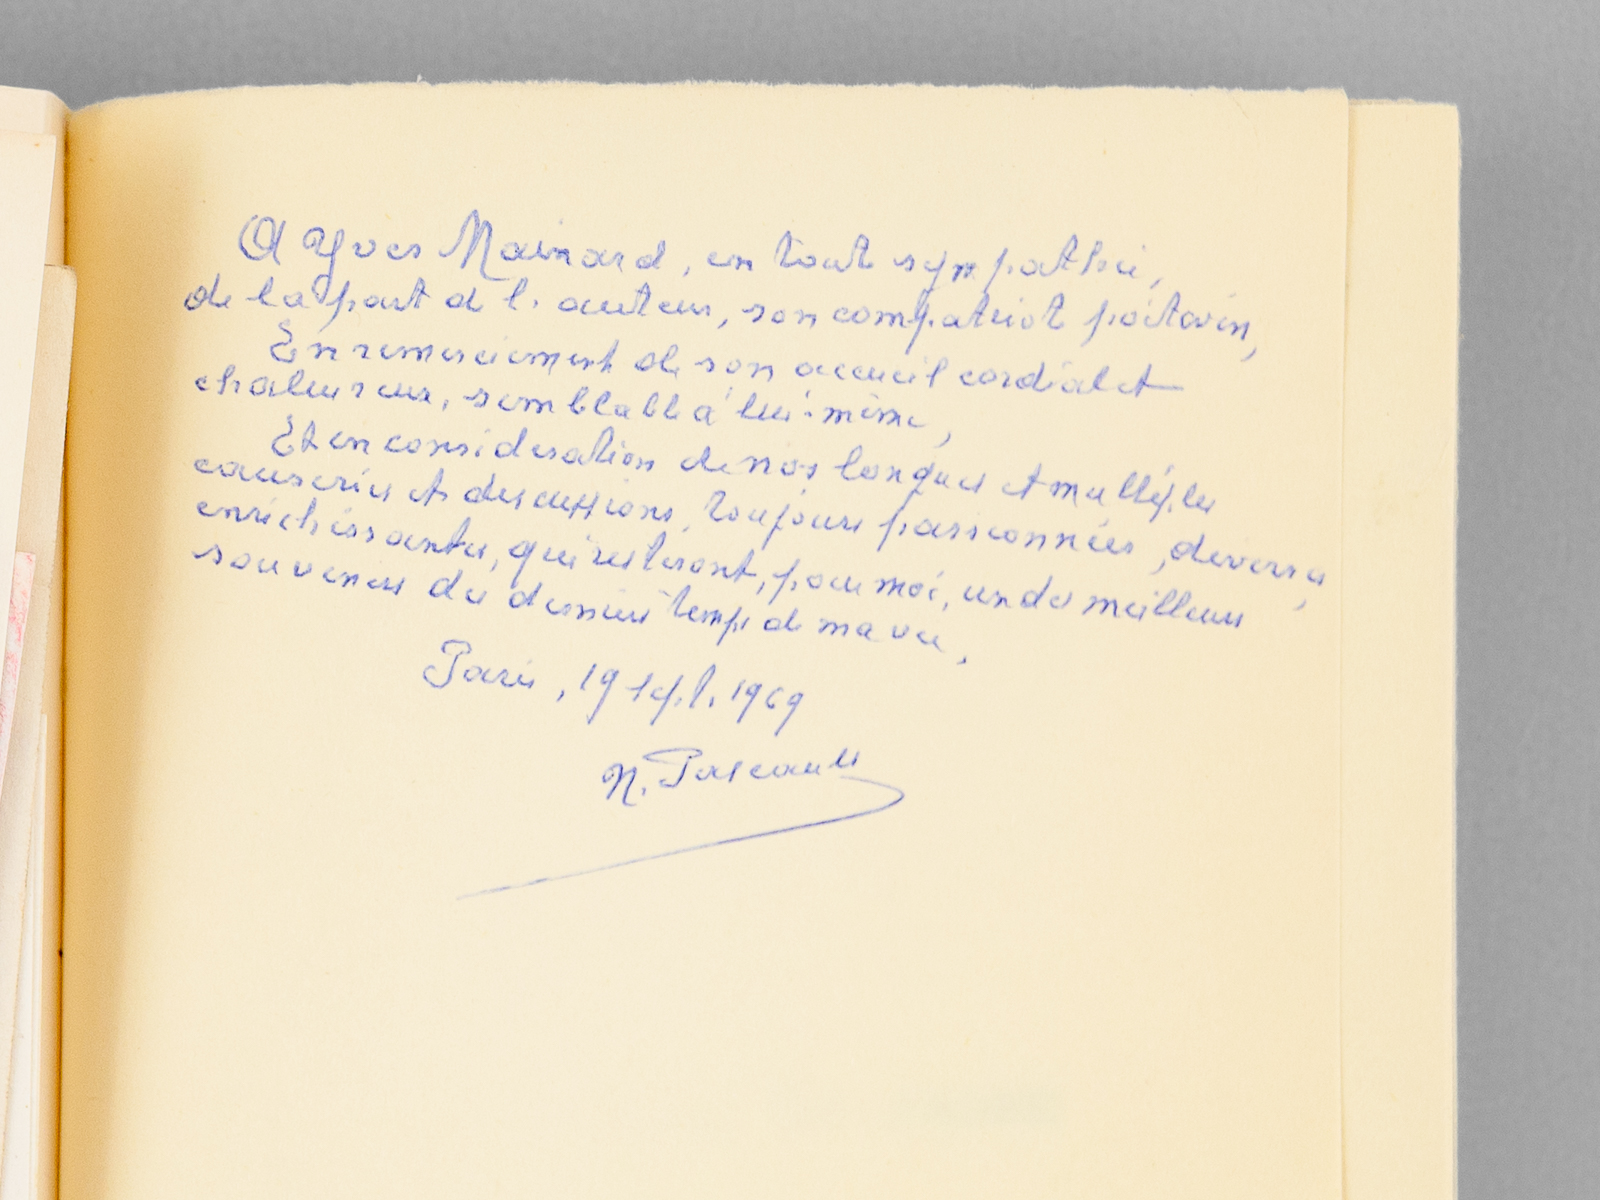 A Yves Mainard, en toute sympathie,
de la part de l'auteur, son compatriote poitevin,
En remerciement de son accueil cordial et
chaleureux, semblable à lui-même,
Et en considération de nos longues et multiples
causeries et discussions, toujours passionnées, diverses,
enrichissantes, qui resteront, pour moi, un des meilleurs
souvenirs des derniers temps de ma vie.
Paris, 19 sept. 1969
N. Pascault